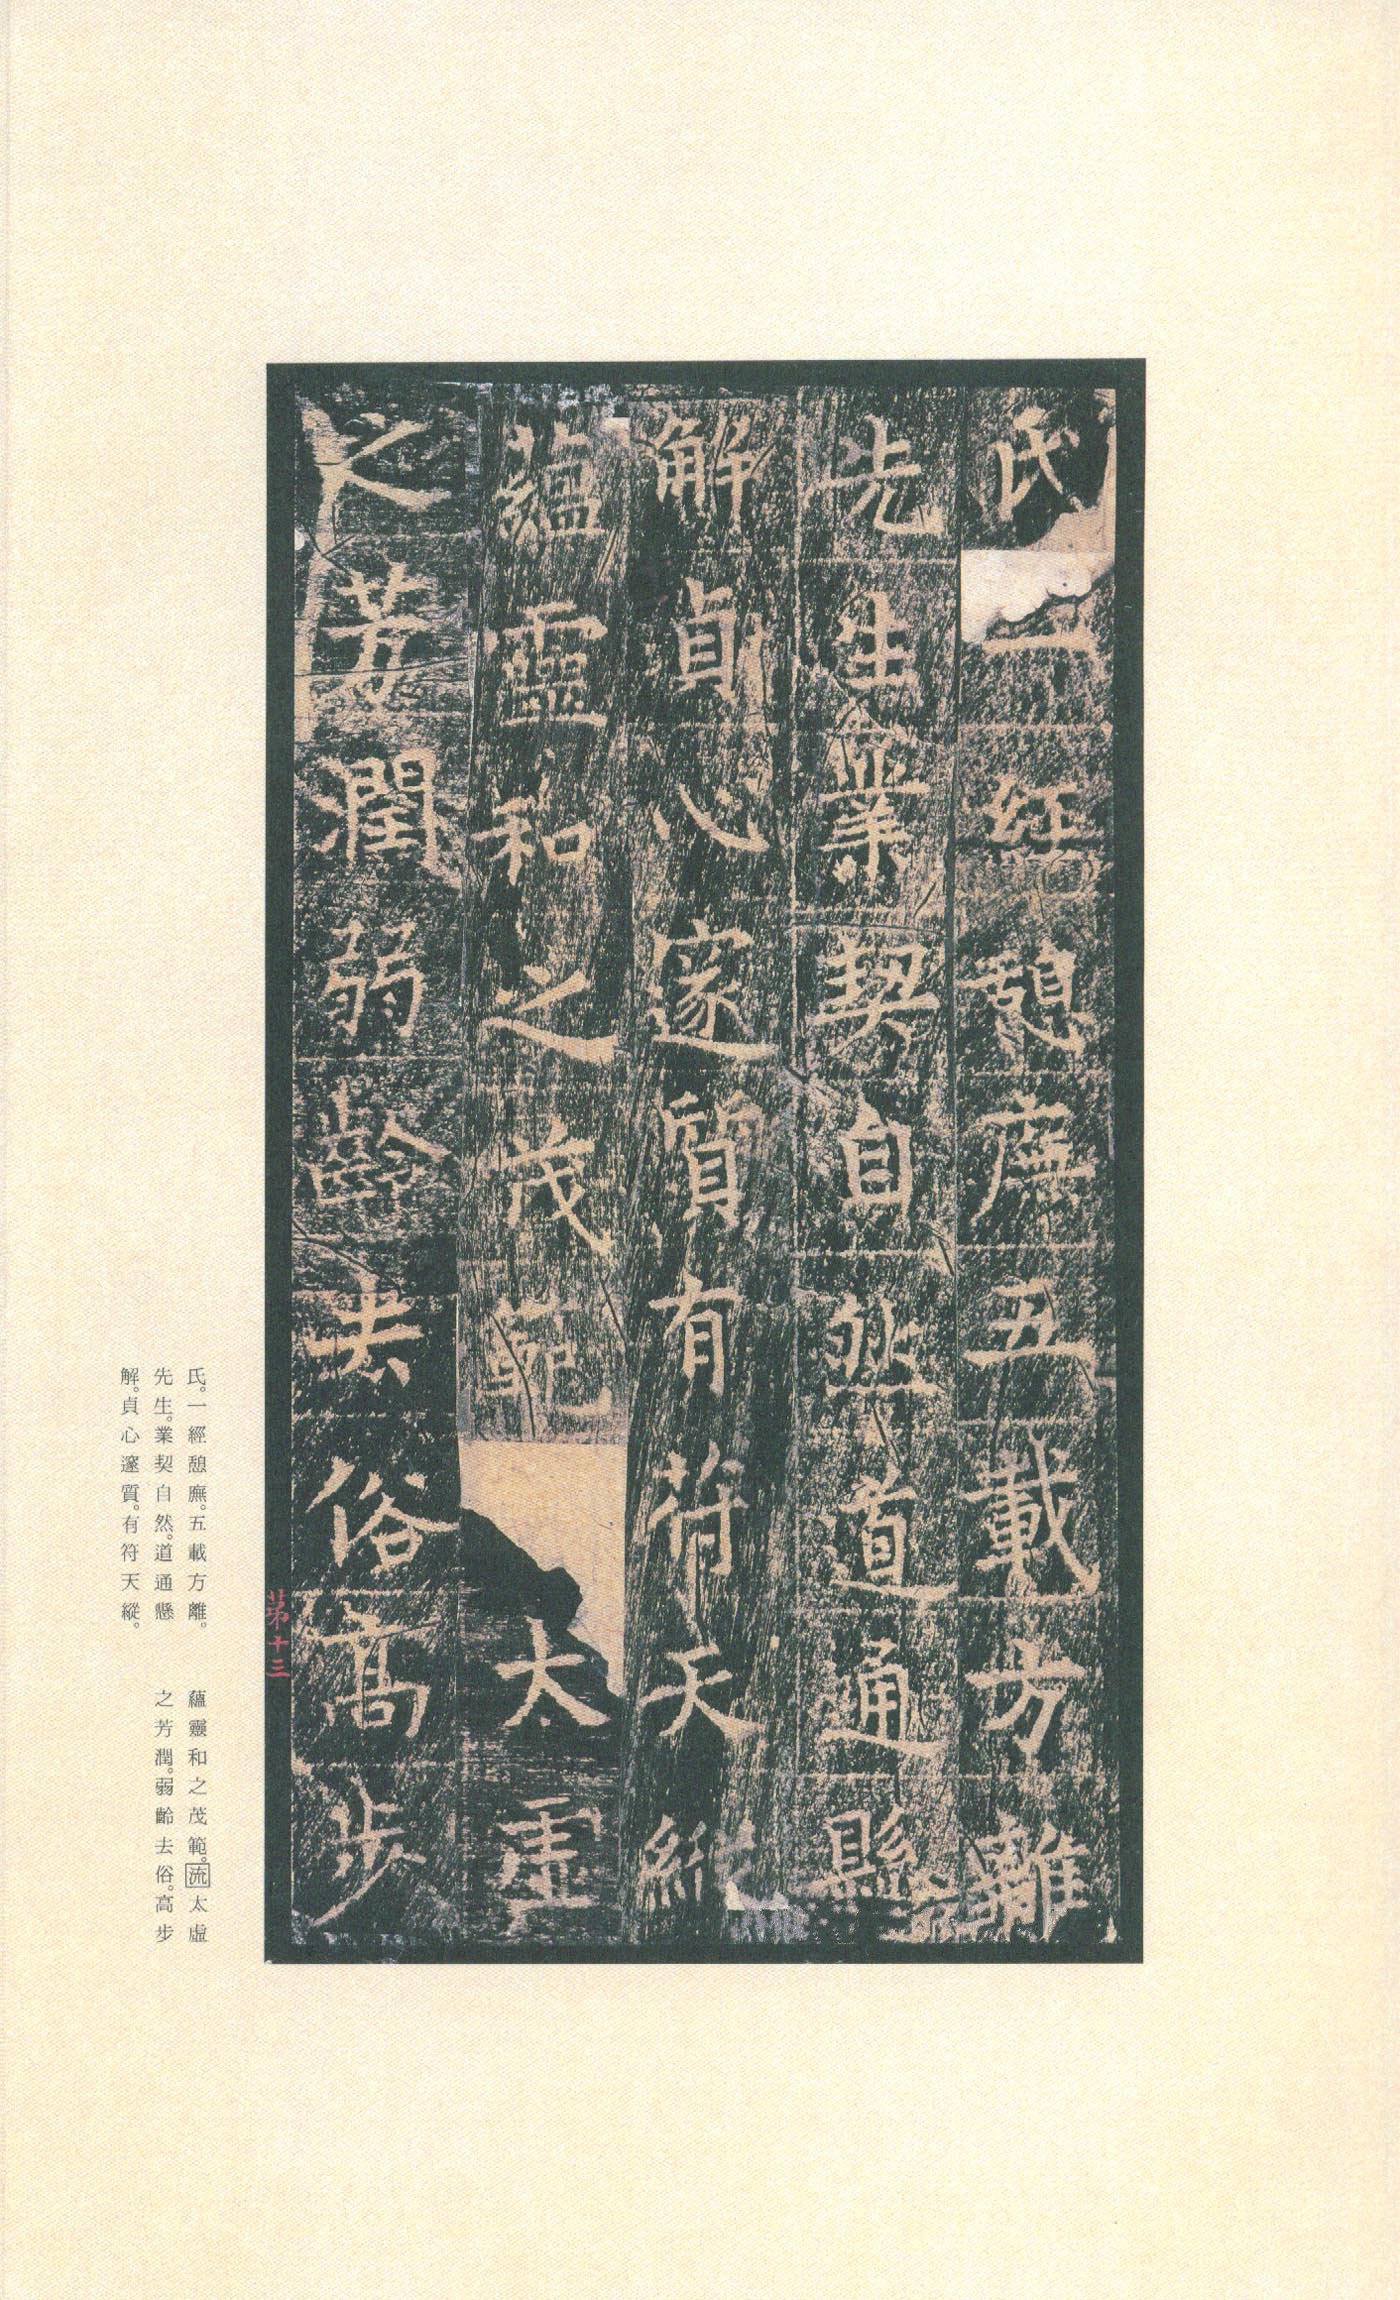 氏一經憩廡五載方離
先生業契自然道通縣
解貞心邃質有符天縱
蘊靈和之茂範太虛
之芳潤弱齡去俗高步
第十三
氏。一經憩廡。五載方離。
先生。業契自然。道通懸
解。貞心邃質。有符天縱。
蘊靈和之茂範。流太虛
之芳潤。弱齡去俗。高步